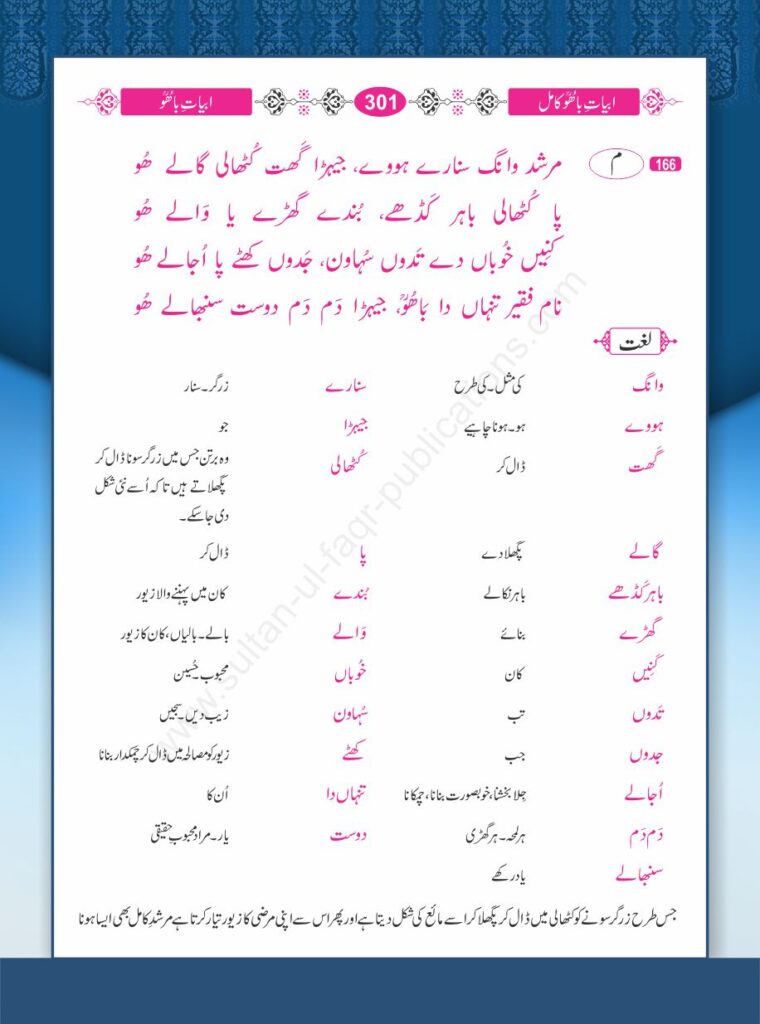 ابیاتِ باھُوؒ کامل 301 ابیاتِ باھُوؒ
166 م مرشد وانگ سنارے ہووے، جیہڑا گَھت کُٹھالی گالے ھُو
پا کُٹھالی باہر کَڈھے، بُندے گھڑے یا وَالے ھُو
کنِیں خُوباں دے تَدوں سُہاون، جَدوں کھٹے پا اُجالے ھُو
نام فقیر تنہاں دا بَاھُوؒ، جیہڑا دَم دَم دوست سنبھالے ھُو
لغت
وانگ کی مثل۔ کی طرح سنارے زرگر۔ سنار
ہووے ہو۔ ہونا چاہیے جیہڑا جو
گَھت ڈال کر کُٹھالی وہ برتن جس میں زرگر سونا ڈال کر
پگھلاتے ہیں تاکہ اُسے نئی شکل
دی جا سکے۔
گالے پگھلا دے پا ڈال کر
باہر کَڈھے باہر نکالے بُندے کان میں پہننے والا زیور
گھڑے بنائے وَالے بالے۔ بالیاں، کان کا زیور
کَنِیں کان خُوباں محبوب۔ حُسین
تَدوں تب سُہاون زیب دیں۔ سجیں
جدوں جب کھٹے زیور کو مصالحہ میں ڈال کر چمکدار بنانا
اُجالے جِلا بخشنا، خوبصورت بنانا، چمکانا تنہاں دا اُن کا
دَم دَم ہر لمحہ۔ ہر گھڑی دوست یار۔ مراد محبوبِ حقیقی
سنبھالے یاد رکھے
جس طرح زرگر سونے کو کٹھالی میں ڈال کر پگھلا کر اسے مائع کی شکل دیتا ہے اور پھر اس سے اپنی مرضی کا زیور تیار کرتا ہے مرشدِ کامل بھی ایسا ہونا
www.sultan-ul-faqr-publications.com